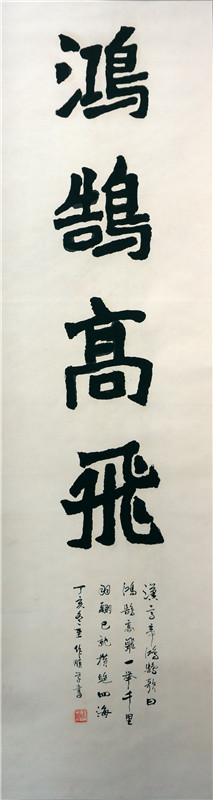 鴻鵠高飛
漢高帝鴻鵠歌曰
鴻鵠高飛一舉千里
羽翮已就橫絕四海
丁亥冬至作順學書